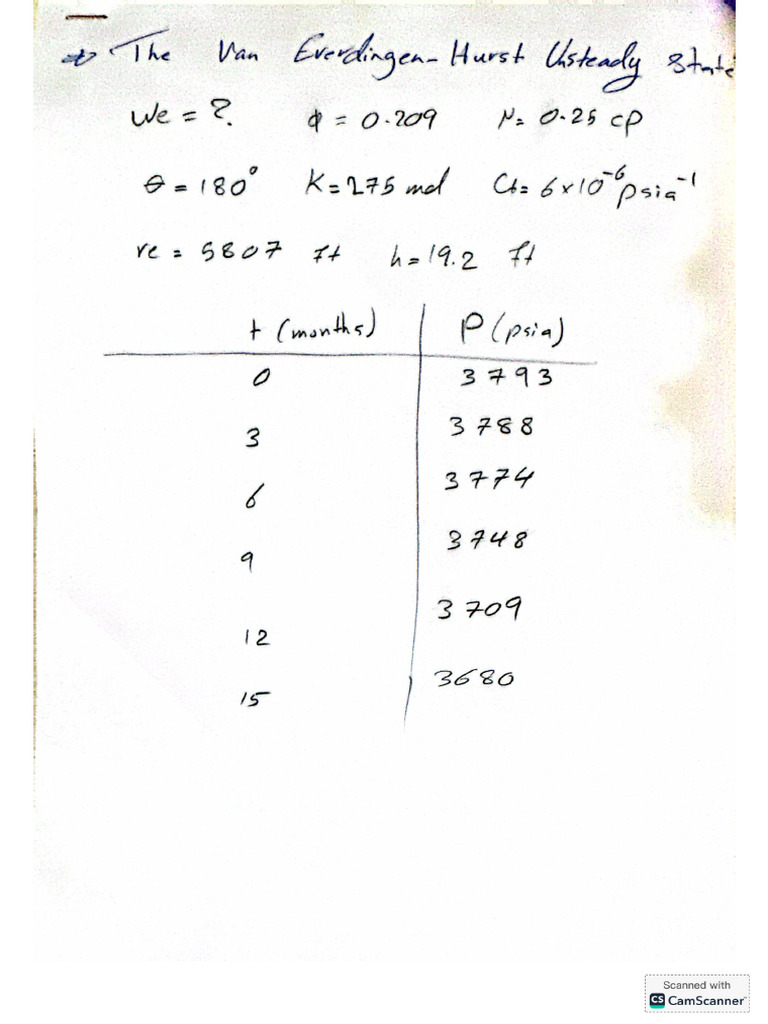 → The Van Everdingen-Hurst Unsteady State
We = ? φ = 0.209 μ = 0.25 cp
θ = 180° K = 275 md Ct = 6×10⁻⁶ psia⁻¹
re = 5807 ft h = 19.2 ft
t (months) P (psia)
0 3793
3 3788
6 3774
9 3748
12 3709
15 3680
Scanned with
CS CamScanner